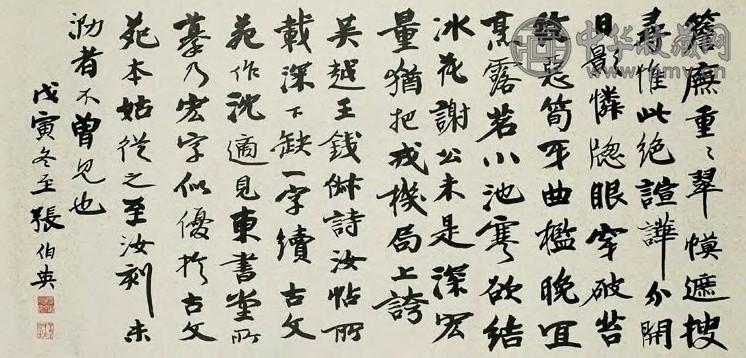 簷廡重〻翠幙遮搜
尋惟此絶諠譁分開
日影憐牕眼穿破苔
惡筍牙曲檻晚宜
烹露茗小池寒欲結
冰花謝公未是深宏
量猶把戎機局上誇
吳越王錢俶詩汝帖所
載深下缺一字續古文
苑作沈適見東書堂所
摹乃宏字似優於古文
苑本姑從之至汝刻未
泐者不曾見也
戊寅冬至張伯英
中华收藏网